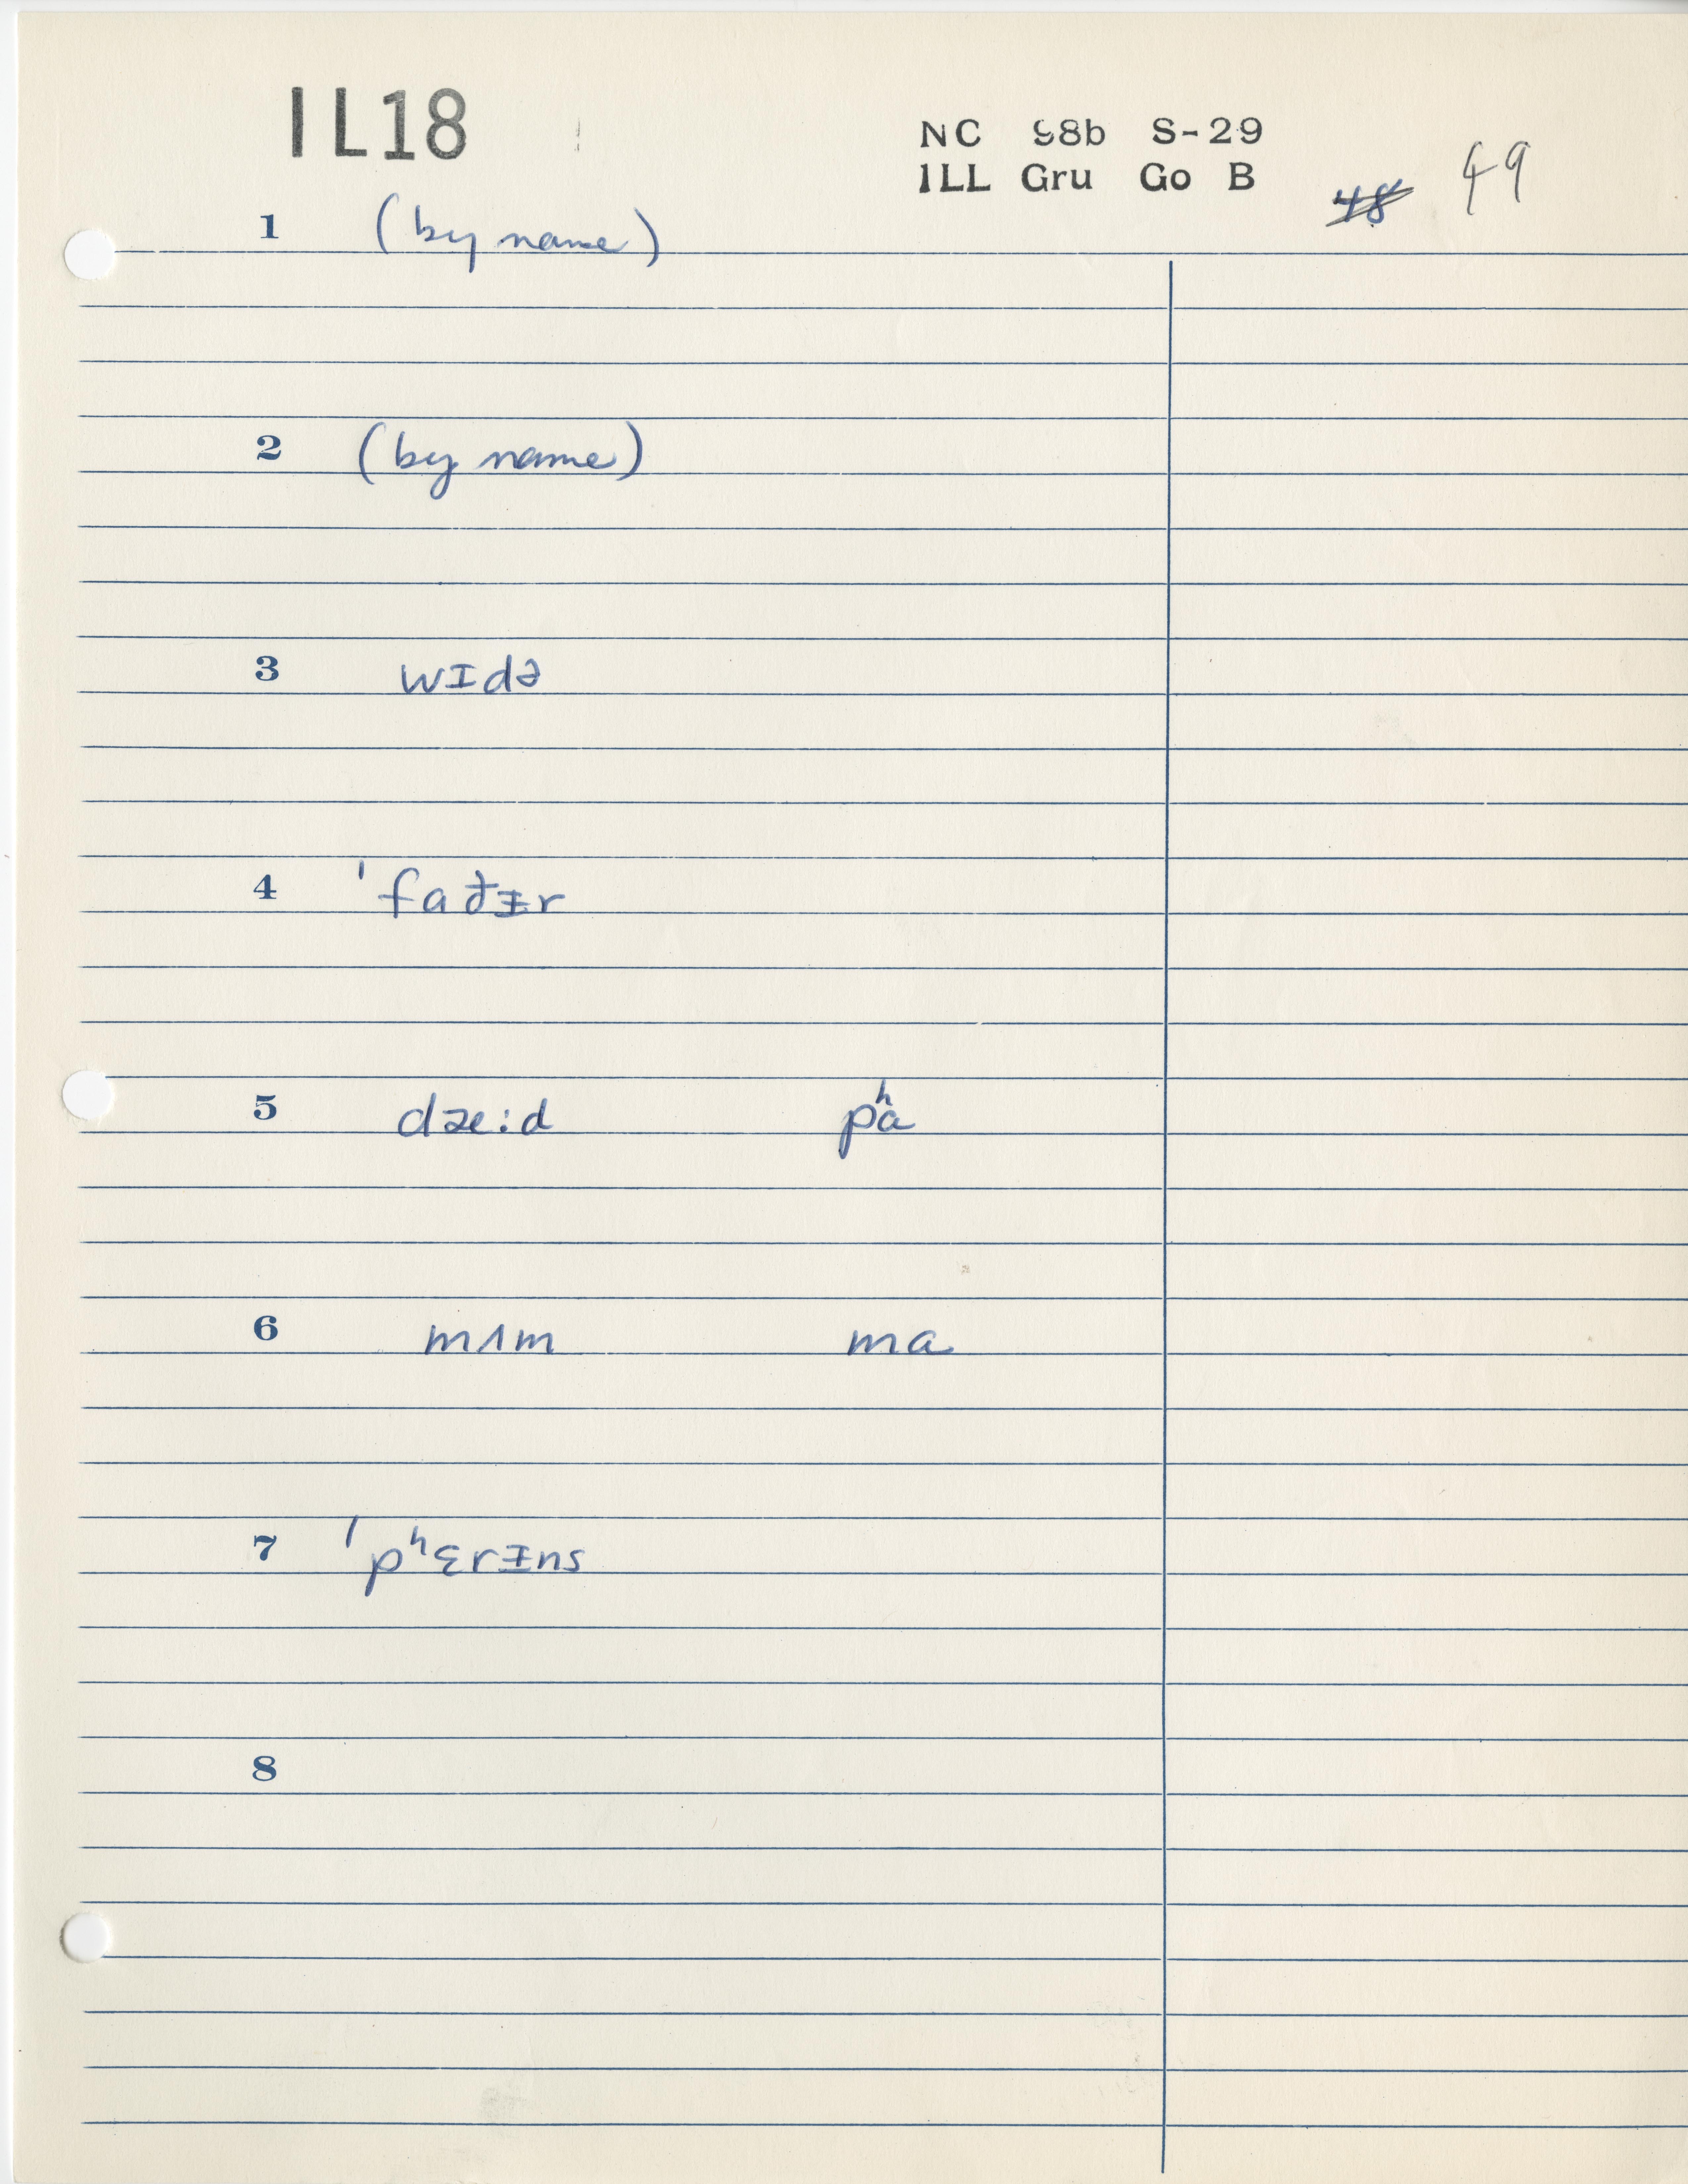 IL18
NC 98b S-29
ILL Gru Go B
48 49
1 (by name)
2 (by name)
3 wɪdə
4 ˈfaðᵻr
5 dæ:d pʰa
6 mʌm ma
7 ˈpʰɛrᵻns
8